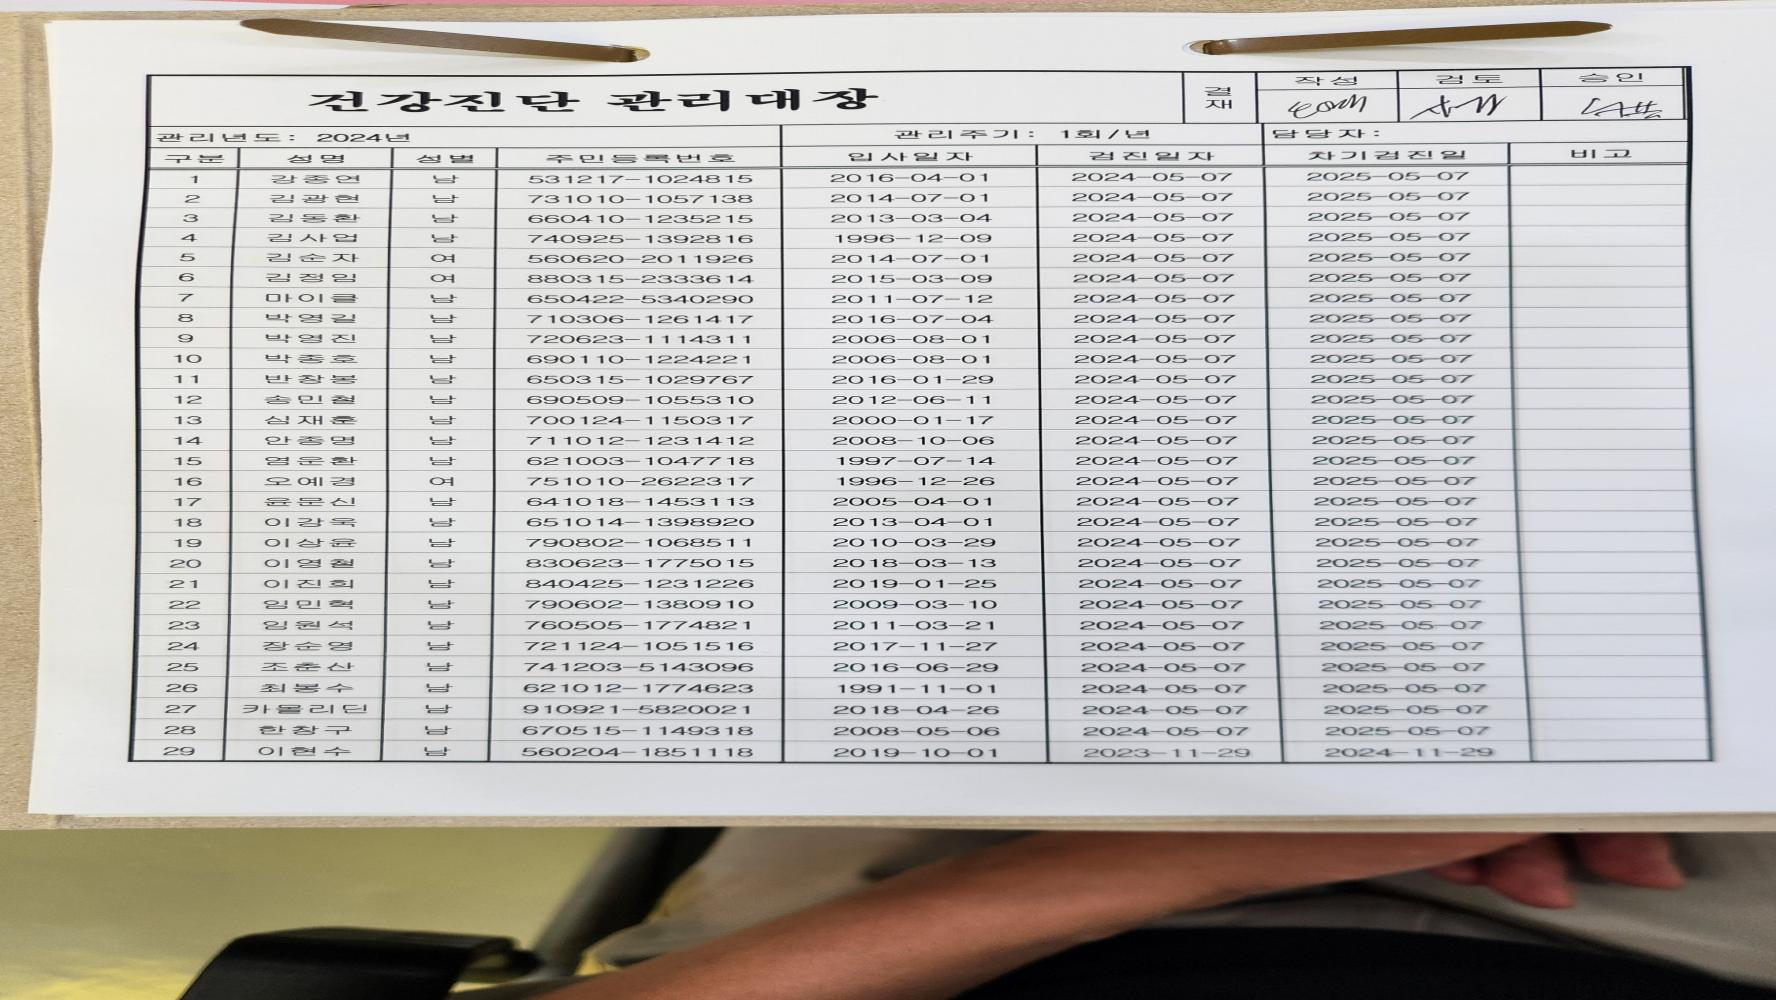 건강진단 관리대장 결재 작성 검토 승인
관리년도: 2024년 관리주기: 1회/년 담당자:
구분 성명 성별 주민등록번호 입사일자 검진일자 차기검진일 비고
1 강종연 남 531217-1024815 2016-04-01 2024-05-07 2025-05-07
2 김광현 남 731010-1057138 2014-07-01 2024-05-07 2025-05-07
3 김동환 남 660410-1235215 2013-03-04 2024-05-07 2025-05-07
4 김사업 남 740925-1392816 1996-12-09 2024-05-07 2025-05-07
5 김순자 여 560620-2011926 2014-07-01 2024-05-07 2025-05-07
6 김정임 여 880315-2333614 2015-03-09 2024-05-07 2025-05-07
7 마이클 남 650422-5340290 2011-07-12 2024-05-07 2025-05-07
8 박영길 남 710306-1261417 2016-07-04 2024-05-07 2025-05-07
9 박영진 남 720623-1114311 2006-08-01 2024-05-07 2025-05-07
10 박종호 남 690110-1224221 2006-08-01 2024-05-07 2025-05-07
11 반창봉 남 650315-1029767 2016-01-29 2024-05-07 2025-05-07
12 송민철 남 690509-1055310 2012-06-11 2024-05-07 2025-05-07
13 심재훈 남 700124-1150317 2000-01-17 2024-05-07 2025-05-07
14 안종명 남 711012-1231412 2008-10-06 2024-05-07 2025-05-07
15 염운환 남 621003-1047718 1997-07-14 2024-05-07 2025-05-07
16 오예경 여 751010-2622317 1996-12-26 2024-05-07 2025-05-07
17 윤문신 남 641018-1453113 2005-04-01 2024-05-07 2025-05-07
18 이강욱 남 651014-1398920 2013-04-01 2024-05-07 2025-05-07
19 이상윤 남 790802-1068511 2010-03-29 2024-05-07 2025-05-07
20 이영철 남 830623-1775015 2018-03-13 2024-05-07 2025-05-07
21 이진희 남 840425-1231226 2019-01-25 2024-05-07 2025-05-07
22 임민혁 남 790602-1380910 2009-03-10 2024-05-07 2025-05-07
23 임원석 남 760505-1774821 2011-03-21 2024-05-07 2025-05-07
24 장순영 남 721124-1051516 2017-11-27 2024-05-07 2025-05-07
25 조춘산 남 741203-5143096 2016-06-29 2024-05-07 2025-05-07
26 최봉수 남 621012-1774623 1991-11-01 2024-05-07 2025-05-07
27 카몰리딘 남 910921-5820021 2018-04-26 2024-05-07 2025-05-07
28 한창구 남 670515-1149318 2008-05-06 2024-05-07 2025-05-07
29 이현수 남 560204-1851118 2019-10-01 2023-11-29 2024-11-29